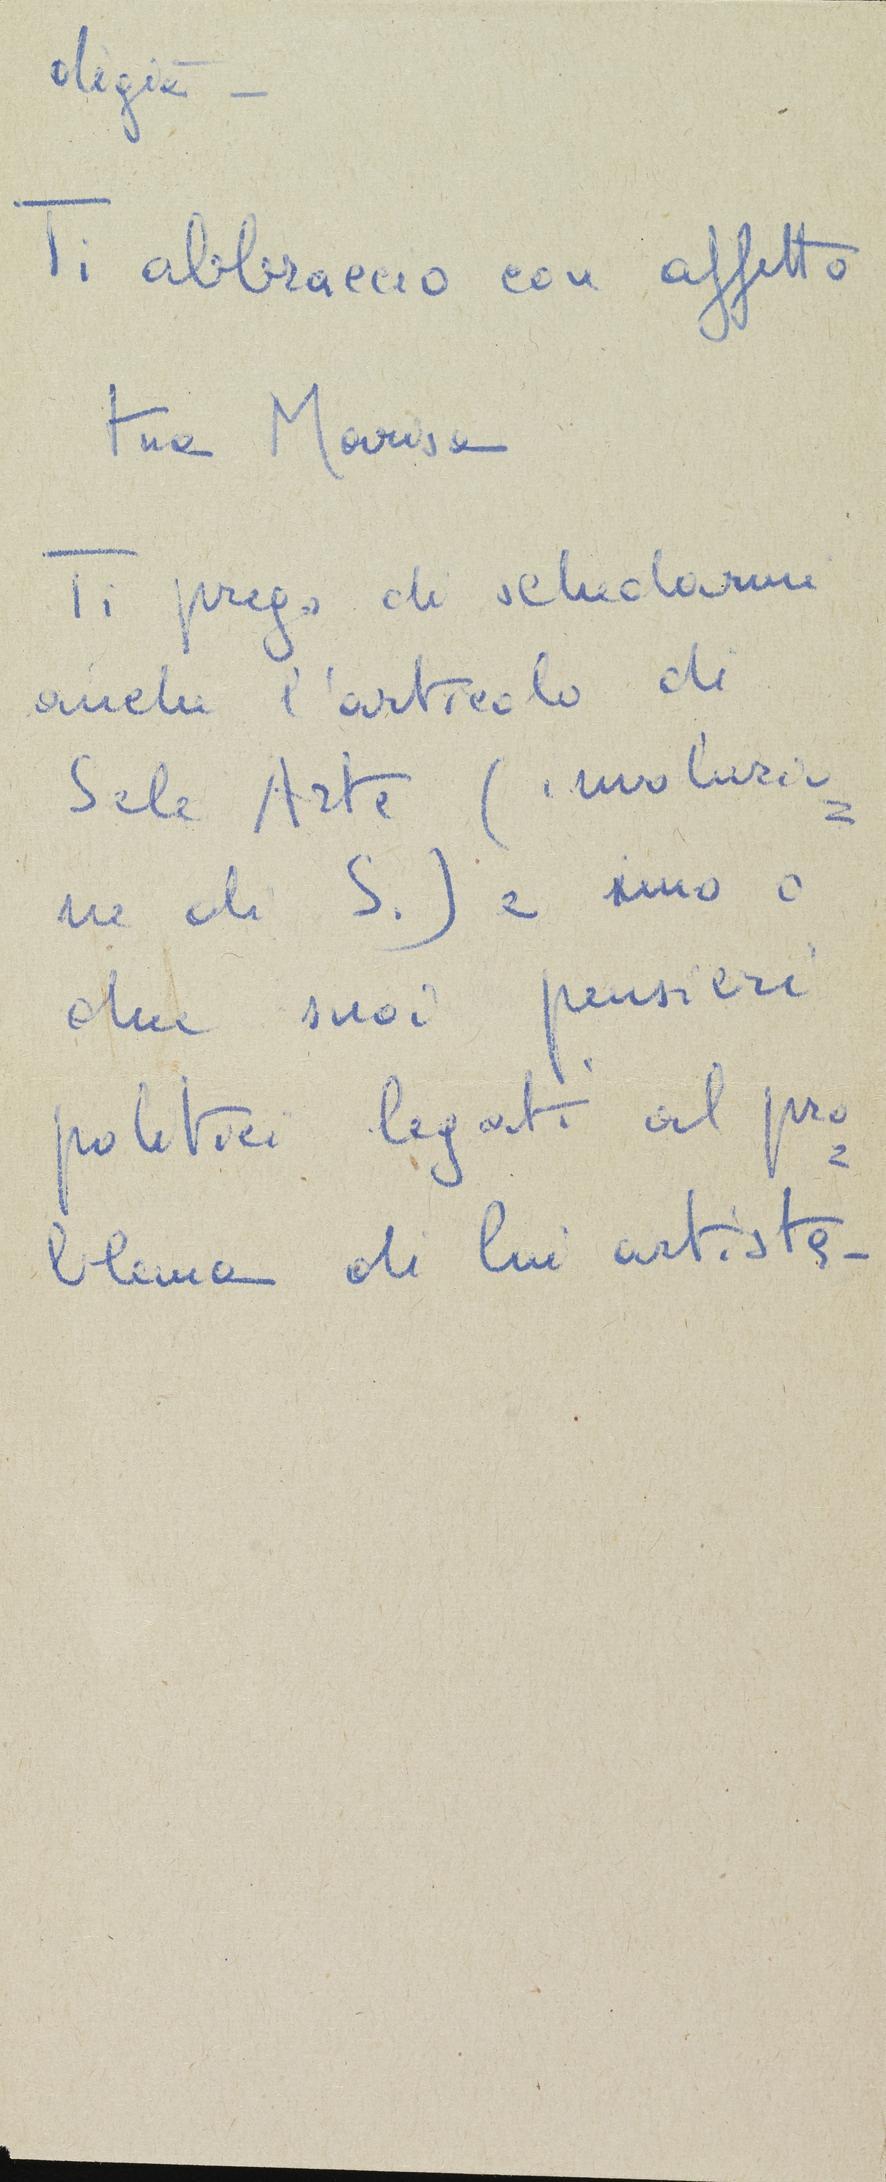 digià -
Ti abbraccio con affetto
tua Marisa
Ti prego di schedarmi
anche l'articolo di
Sele Arte (involuzio=
ne di S.) e uno o
due suoi pensieri
politici legati al pro=
blema di lui artista-